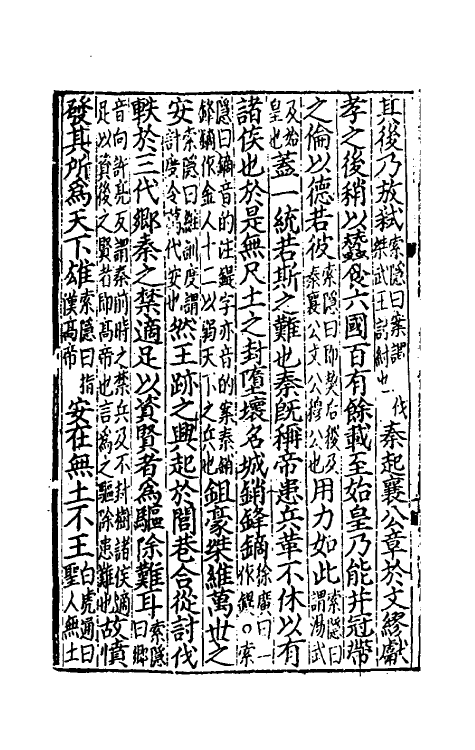 其後乃放弑索隱曰案謂伐桀武王討紂也秦起襄公章於文繆獻
孝之後稍以蠶食六國百有餘載至始皇乃能并冠帶
之倫以德若彼索隱曰即契后稷及秦襄公文公穆公也用力如此索隱曰謂湯武
及始皇也蓋一統若斯之難也秦既稱帝患兵革不休以有
諸侯也於是無尺土之封墮壞名城銷鋒鏑徐廣曰一作鍉〇索
隱曰鏑音的注鍉字亦音的案秦銷鋒鏑作金人十二以弱天下之兵也鉏豪桀維萬世之
安索隱曰維訓度謂計度令萬代安也然王跡之興起於閭巷合從討伐
軼於三代鄉秦之禁適足以資賢者爲驅除難耳索隱曰鄉
音向許亮反謂秦前時之禁兵及不封樹諸侯適足以資後之賢者即高帝也言爲之驅除患難也故憤
發其所爲天下雄索隱曰指漢高帝安在無土不王白虎通曰聖人無土